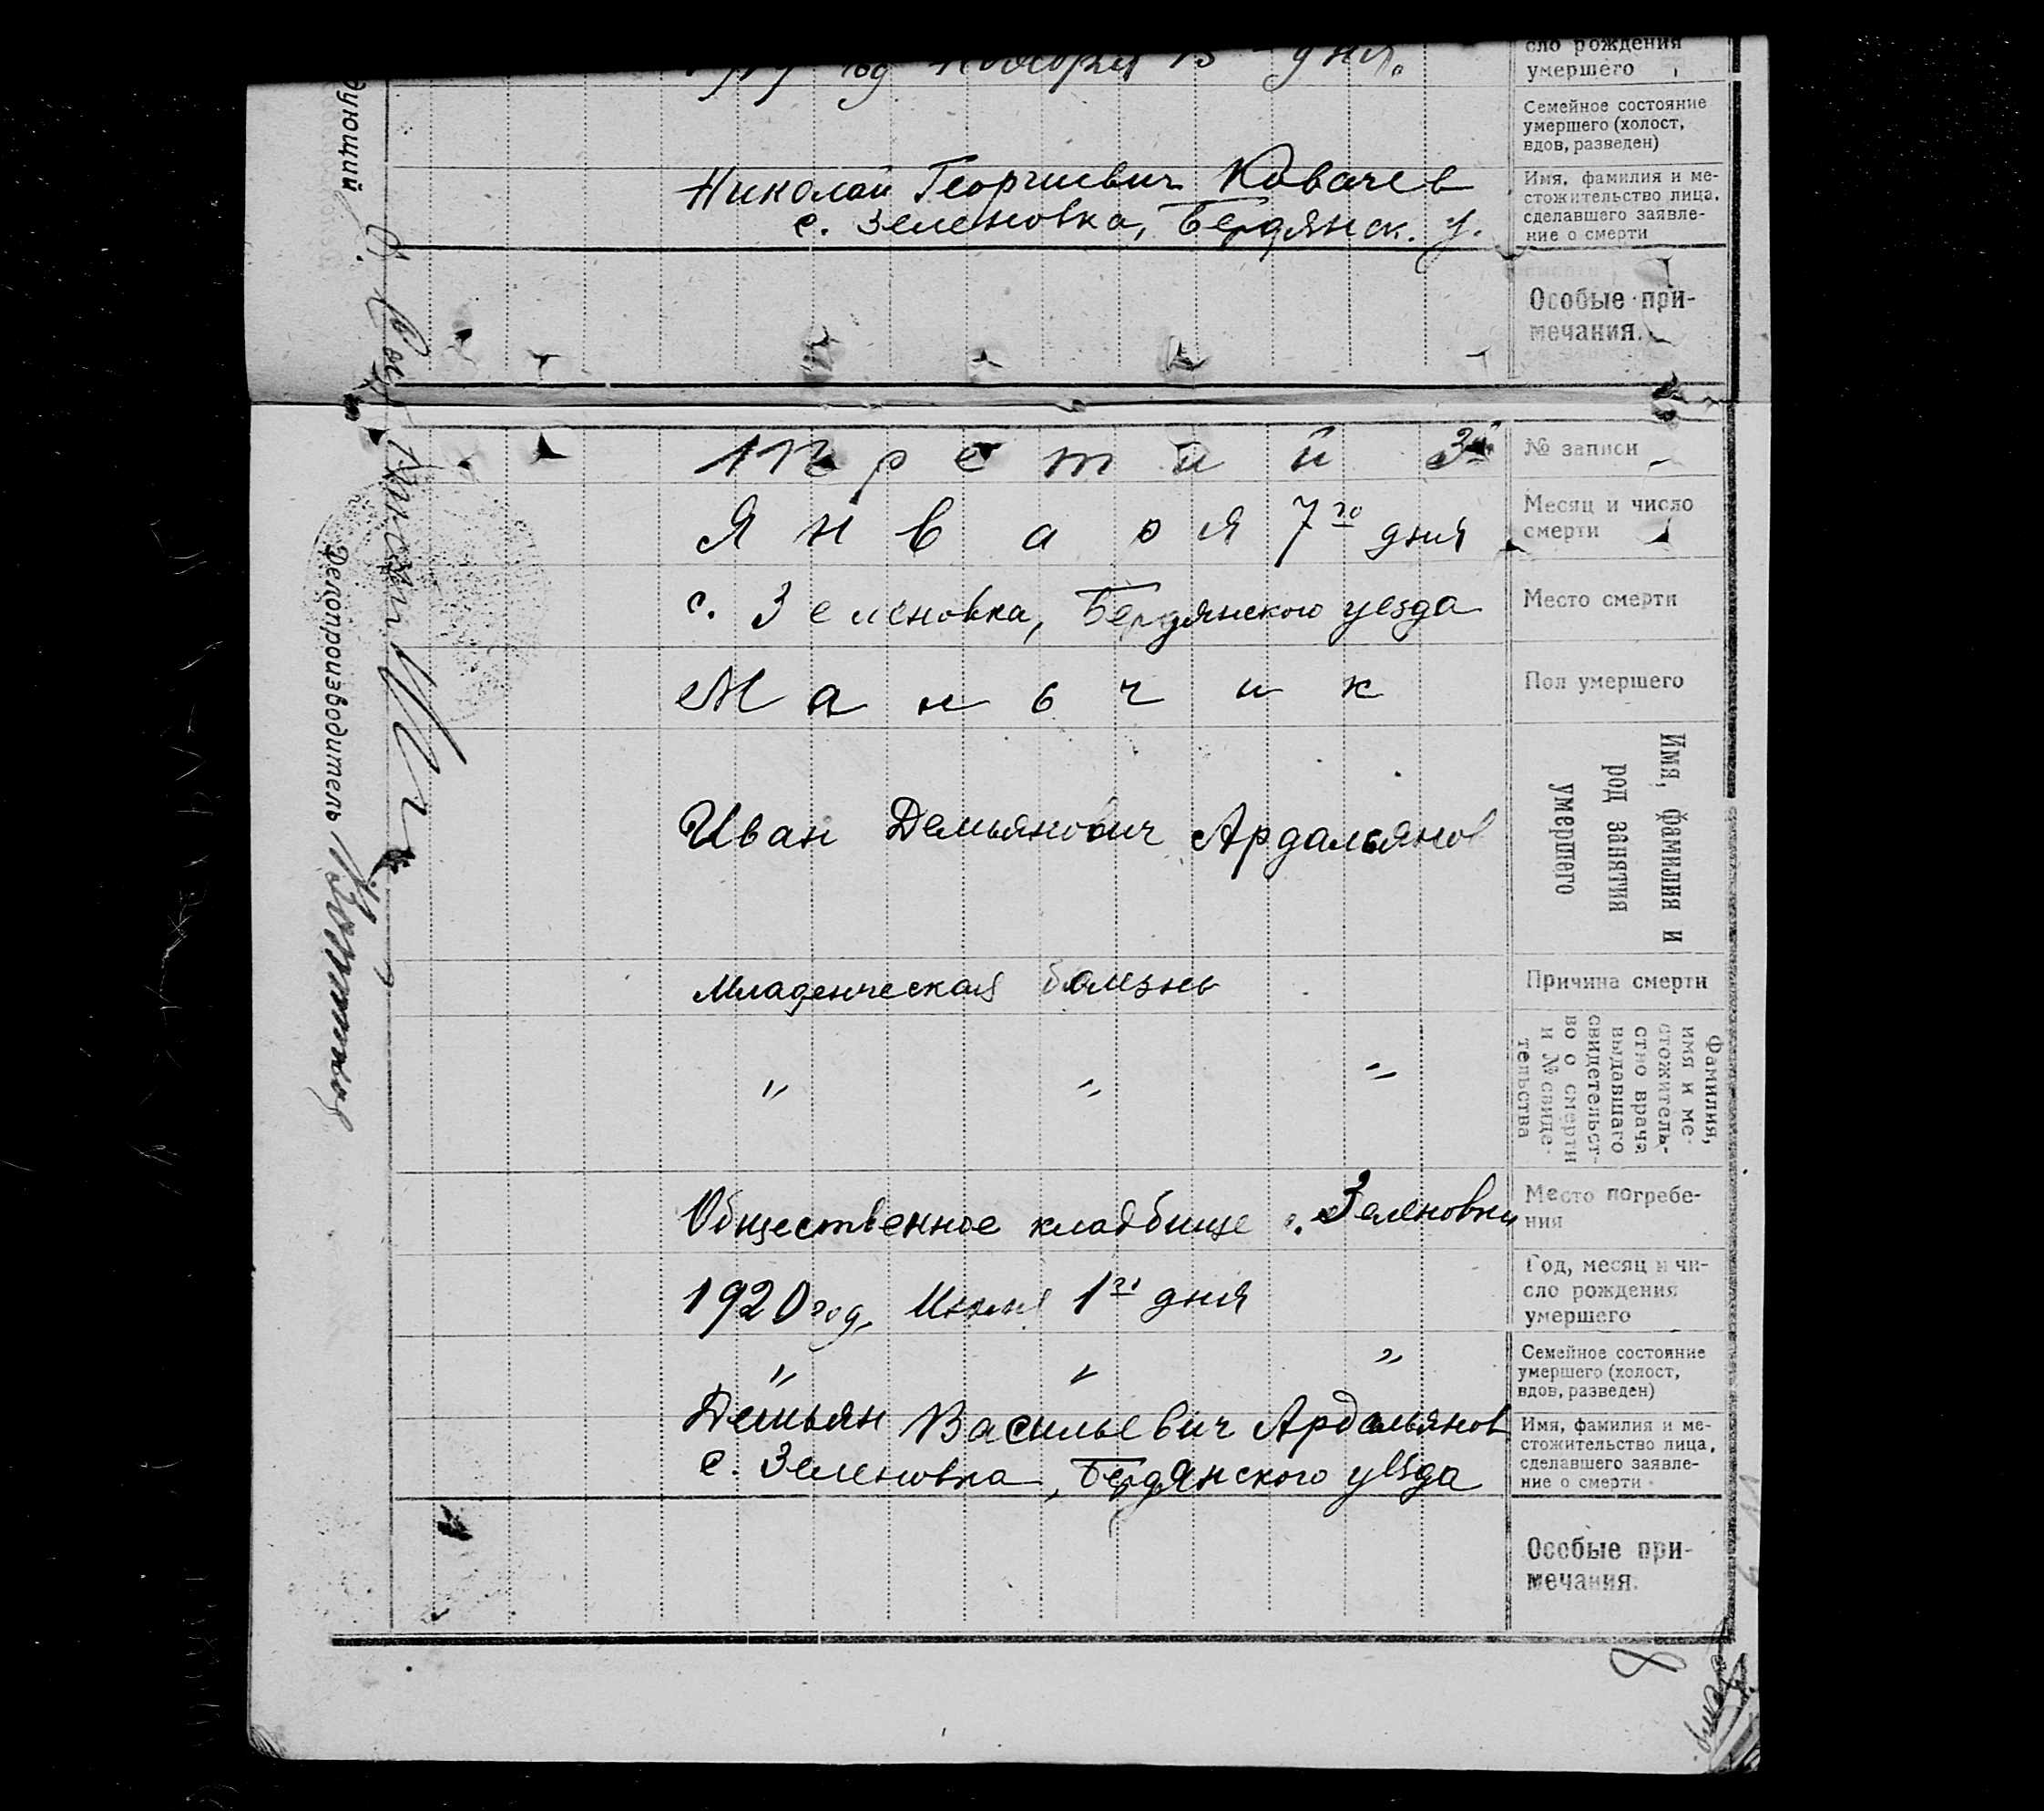 сло рождения
умершего
Семейное состояние
умершего (холост,
вдов, разведен)
Николай Георгиевич Ковачев
с. Зеленовка, Бердянск. у.
Имя, фамилия и ме-
стожительство лица,
сделавшего заявле-
ние о смерти
Особые при-
мечания.
Третий 3й
№ записи
Января 7го дня
Месяц и число
смерти
с. Зеленовка, Бердянского уезда
Место смерти
Мальчик
Пол умершего
Иван Демьянович Ардальянов
Имя, фамилия и
род занятия
умершего
Младенческая болезнь
Причина смерти
" " "
Фамилия,
имя и ме-
стожитель-
ство врача
выдавшего
свидетельст-
во о смерти
и № свиде-
тельства
Общественное кладбище с. Зеленовки
Место погребе-
ния
1920 год, 1го дня
Год, месяц и чи-
сло рождения
умершего
" " "
Семейное состояние
умершего (холост,
вдов, разведен)
Демьян Васильевич Ардальянов
с. Зеленовка, Бердянского уезда
Имя, фамилия и ме-
стожительство лица,
сделавшего заявле-
ние о смерти
Особые при-
мечания.
дующий
Делопроизводитель